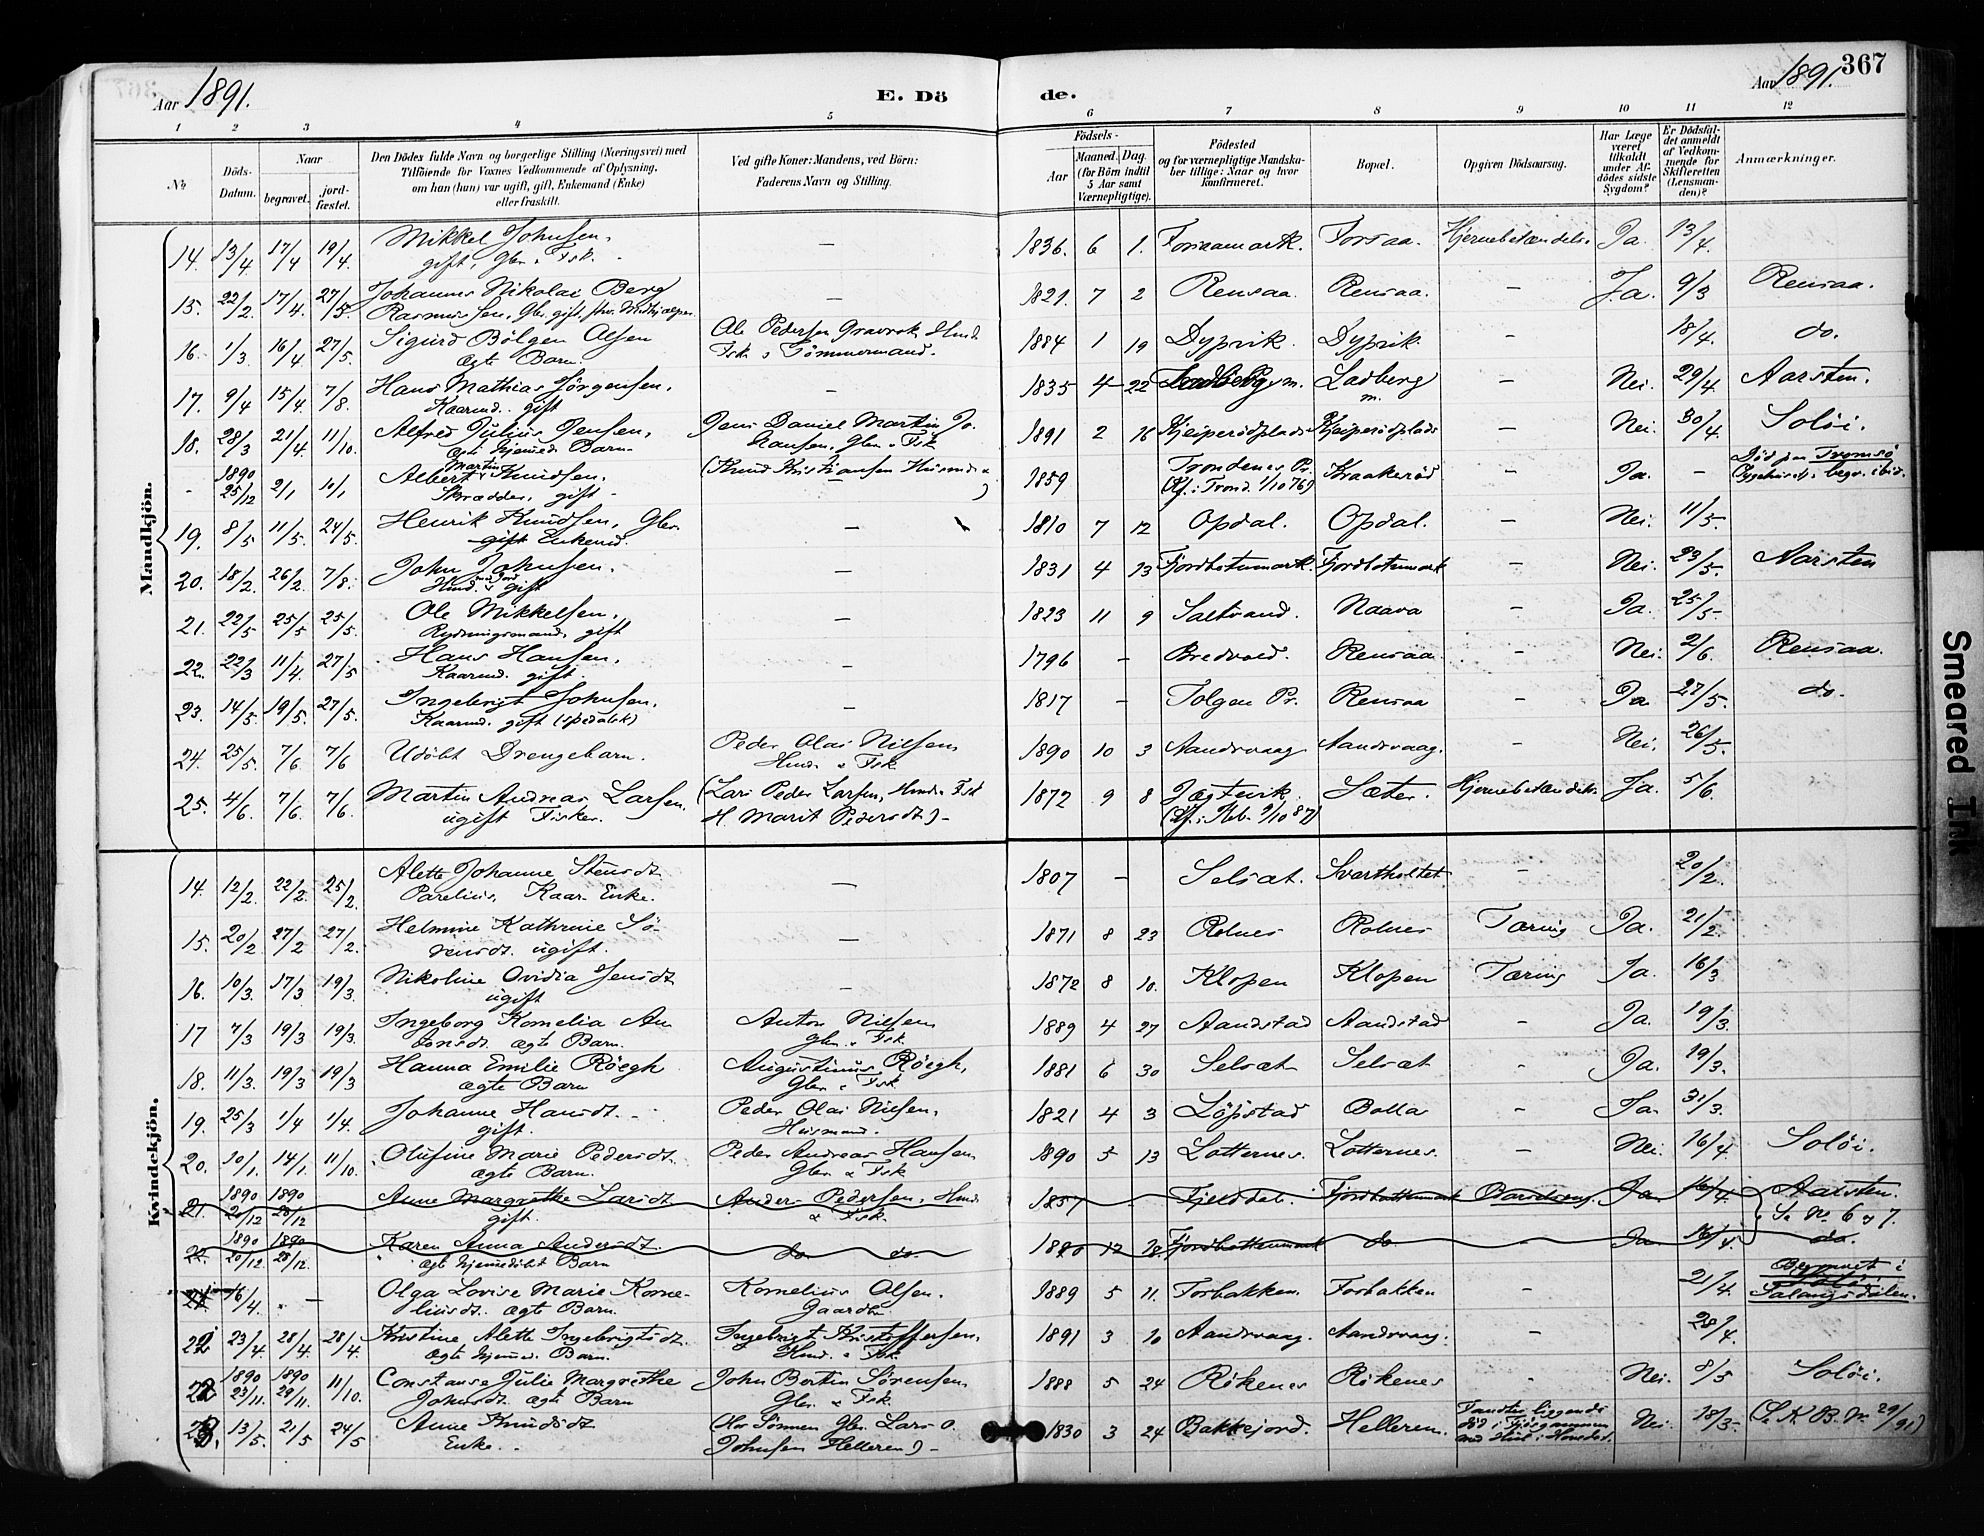 367
Aar 1891.
E. Döde.
Aar 1891.
1 2 3 4 5 6 7 8 9 10 11 12
No
Döds-Datum.
Naar
begravet.
jordfæstet.
Den Dödes fulde Navn og borgerlige Stilling (Næringsvei) med
Tilföiende for Voxnes Vedkommende af Oplysning,
om han (hun) var ugift, gift, Enkemand (Enke)
eller fraskilt.
Ved gifte Koner: Mandens, ved Börn:
Faderens Navn og Stilling.
Födsels-
Aar
Maaned. Dag.
(for Börn indtil
5 Aar samt
Værnepligtige).
Födested
og for værnepligtige Mandskaber tillige: Naar og hvor konfirmeret.
Bopæl.
Opgiven Dödsaarsag.
Har Læge været tilkaldt under Afdödes sidste Sygdom?
Er Dödsfaldet anmeldt af Vedkommende for Skifteretten (Lensmanden)?
Anmærkninger.
Mandkjön.
14. 13/4 17/4 19/4 Mikkel Johnsen, — 1836 6 1. Forsaamark. Forsaa. Hjernebetændelse Ja. 13/4.
gift, Gbr. & Fsk.
15. 22/2 17/4 27/5 Johannes Nikolai Berg — 1821. 7 2 Rensaa. Rensaa. – Ja. 9/3 Rensaa.
Rasmussen, Gbr. gift, fhv. Medhjælper
16. 1/3 16/4 27/5 Sigurd Bölgen Olsen Ole Pedersen Gravrok, Hmd. 1884 1 19 Dypvik. Dypvik. – 18/4. do.
ægte Barn. Fsk. & Tömmermand.
17. 9/4 15/4 7/8. Hans Mathias Jörgensen, — 1835 4 22 Ladberg m. Ladberg m. – Nei. 29/4. Aarsten.
Kaarmd. gift
18. 28/3 21/4 11/10. Alfred Julius Jensen, Jens Daniel Martin Johansen, Gbr. & Fsk 1891 2 16 Kjeipesödplads Kjeipesödplads – Nei. 30/4. Solöi.
ægte hjemmed. Barn.
- 1890 25/12 2/1 10/1 Albert Martin Knudsen, (Knud Kristiansen Husmd.) 1859 Trondenes Pr. Kraakeröd – Ja. – Död paa Tromsö
Skrædder, gift – (Kf. i Trond. 1/10 76) Sygehus & begr. ibid.
19. 8/5 11/5. 24/5. Henrik Knudsen, Gbr. — 1810 7 12 Opdal. Opdal. – Nei. 11/5.
gift Enkemd.
20. 18/2. 26/2. 7/8. John Johnsen. — 1831 4 13 Fjordbotnmark. Fjordbotnmark – Nei. 23/5. Aarsten
Hmd. med Jord gift
21. 22/5 25/5 25/5. Ole Mikkelsen, — 1823 11 9 Saltvand. Naava – Ja. 25/5.
Rydningsmand, gift
22. 22/3 11/4 27/5 Hans Hansen, — 1796 – Bredvold. Rensaa – Nei. 2/6. Rensaa.
Kaarmd. gift.
23. 14/5. 19/5. 27/5. Ingebrigt Johnsen, — 1817 – Tolgen Pr. Rensaa – Ja 27/5. do.
Kaarmd. gift (spedalsk)
24. 25/5. 7/6. 7/6 Udöbt Drengebarn. Peder Olai Nilsen 1890 10 3 Aandsvaag Aandsvaag. – Nei. 26/5.
Hmd. & Fsk.
25. 4/6. 7/6. 7/6. Martin Andreas Larsen. (Lars Peder Larsen, Hmd. Fsk 1872 9 8 Jægtvik Sæter. Hjernebetændelse Ja. 5/6.
ugift Fisker. H. Marit Pedersdt) – (Kf. i Keb. 9/10 87)
Kvindekjön.
14. 12/2. 22/2. 25/2. Alette Johanne Stensdt — 1807 – Selsæt. Svartholtet. – 20/2.
Parelius, Kaar-Enke.
15. 20/2 27/2 27/2. Helmine Kathrine Sö- — 1871 8 23 Rolnes Rolnes Tæring Ja. 21/2.
rensdt. ugift.
16. 10/3. 17/3 19/3. Nikoline Ovidia Jensdt — 1872 8 10. Klopen Klopen Tæring Ja. 16/3
ugift
17 7/3 19/3 19/3. Ingeborg Kornelia An- Anton Nilsen 1889 4 27 Aandstad Aandstad – Ja. 19/3.
tonsdt. ægte Barn. Gbr. & Fsk.
18. 11/3. 19/3 19/3 Hanna Emilie Röegh Augustinus Röegh, 1881 6 30 Selsæt Selsæt – Ja. 19/3.
ægte Barn Gbr. & Fsk.
19. 25/3 1/4 1/4. Johanne Hansdt. Peder Olai Nielsen, 1821 4 3 Löpstad Bolla – Ja. 31/3.
gift. Husmand.
20. 10/1. 14/1. 11/10. Olufine Marie Pedersdt. Peder Andreas Hansen 1890 5 13 Lotternes. Lotternes. – Nei. 16/4 Solöi.
ægte Barn. Gbr. & Fsk
21. 1890 20/12 1890 28/12 Anne Margrethe Larsdt Anders Pedersen, Hmd. 1857 – Fjelddal. Fjordbottenmark Barselseng. Ja 16/4. Aarsten.
gift. & Fsk. Se No 6 og 7.
22. 1890 20/12 1890 28/12. Karen Anna Andersdt. do do. 1890 12 18. Fjordbottenmark do. Ja. 16/4. do.
ægte hjemmedöbt Barn
21 16/4. – Olga Lovise Marie Korne- Kornelius Olsen. 1889 5 11. Forbakken. Forbakken – 21/4. Begravet i
liusdt. ægte Barn. Gaardbr. Salangsdalen.
22 23/4 28/4. 28/4. Kristine Alette Ingebrigtsdt. Ingebrigt Kristoffersen, 1891 3 10 Aandsvaag. Aandsvaag. – 28/4.
ægte hjemmed. Barn. Hmd. & Fsk.
22 1890 23/11. 1890 29/11. 11/10. Constanse Julie Margrethe John Bertin Sörensen 1888 5 24 Rökenes Rökenes – Nei. 8/5 Solöi.
Johnsdt. ægte Barn Gbr. & Fsk.
23. 13/5. 21/5 24/5 Anne Knudsdt (Hos Sönnen Gbr. Lars O. 1830 3 24 Bakkejord. Helleren. Fandtes liggende Nei. 18/5. (Se K. B. No 29/91)
Enke. Johnsen Helleren) – död i Fjösgammen
med Hul i Hovedet.
Smeared Ink